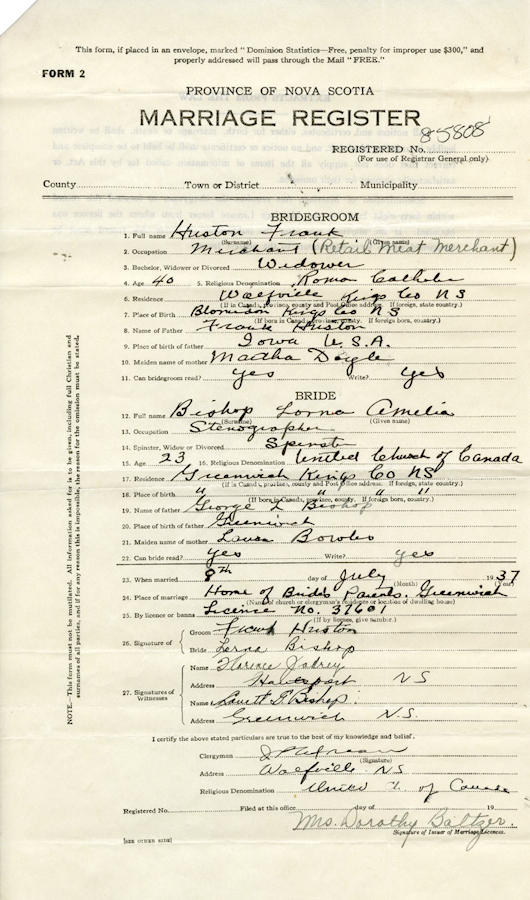 This form, if placed in an envelope, marked "Dominion Statistics—Free, penalty for improper use $300," and
properly addressed will pass through the Mail "FREE."
FORM 2
PROVINCE OF NOVA SCOTIA
MARRIAGE REGISTER
REGISTERED No. 85808
(For use of Registrar General only)
County Town or District Municipality
BRIDEGROOM
1. Full name Huston Frank
(Surname) (Given name)
2. Occupation Merchant (Retail Meat Merchant)
3. Bachelor, Widower or Divorced Widower
4. Age 40 5. Religious Denomination Roman Catholic
6. Residence Wolfville Kings Co NS
(If in Canada, province, county and Post Office address. If foreign, state country.)
7. Place of Birth Blomidon Kings Co NS
(If born in Canada, province, county. If foreign born, country.)
8. Name of Father Frank Huston
9. Place of birth of father Iowa U.S.A.
10. Maiden name of mother Martha Doyle
11. Can bridegroom read? yes Write? yes
BRIDE
12. Full name Bishop Lorna Amelia
(Surname) (Given name)
13. Occupation Stenographer
14. Spinster, Widow or Divorced Spinster
15. Age 23 16. Religious Denomination United Church of Canada
17. Residence Greenwich Kings Co NS
(If in Canada, province, county and Post Office address. If foreign, state country.)
18. Place of birth " " " "
(If born in Canada, province, county. If foreign born, country.)
19. Name of father George L Bishop
20. Place of birth of father Greenwich
21. Maiden name of mother Laura Bowles
22. Can bride read? yes Write? yes
23. When married 8th day of July 1937
(Month)
24. Place of marriage Home of Brides Parents. Greenwich
(Name of church or clergyman's residence or location of dwelling house)
25. By licence or banns License No. 37601
(If by licence, give number.)
26. Signature of Groom Frank Huston
Bride Lorna Bishop
27. Signatures of Witnesses
Name Florence
Address Hantsport NS
Name Bishop
Address Greenwich N.S.
I certify the above stated particulars are true to the best of my knowledge and belief.
Clergyman
(Signature)
Address Wolfville NS
Religious Denomination United Ch. of Canada
Registered No. Filed at this office day of 19
Mrs. Dorothy Baltzer.
Signature of Issuer of Marriage Licences.
[SEE OTHER SIDE]
NOTE.—This form must not be mutilated. All information asked for is to be given, including full Christian and
surnames of all parties, and if for any reason this is impossible, the reason for the omission must be stated.